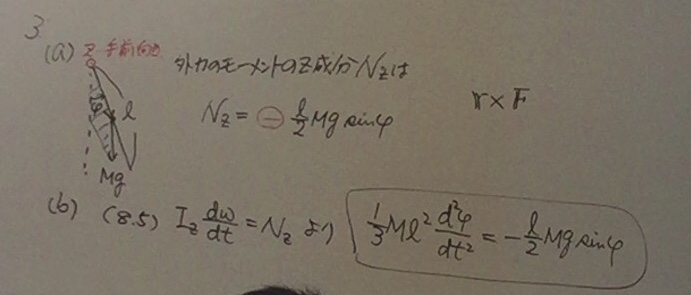 3
(a) z 手前向き 外力のモーメントのz成分Nzは
φ l Nz = ⊖ l/2 Mg sinφ r × F
Mg
(b) (8.5) Iz dω/dt = Nz より 1/3 Ml² d²φ/dt² = - l/2 Mg sinφ